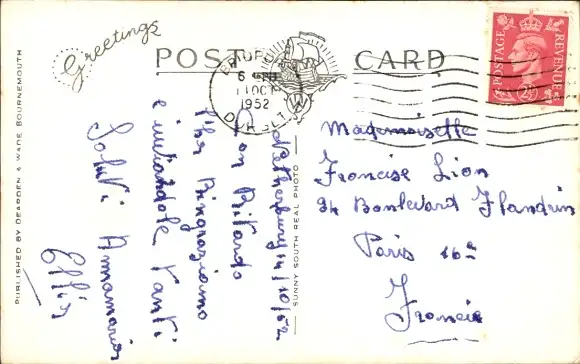 Greetings
POST CARD
6 PM
11 OCT
1952
DORSET
POSTAGE
REVENUE
2½D
PUBLISHED BY DEARDEN & WADE BOURNEMOUTH
SUNNY SOUTH REAL PHOTO
Netherbury 11/10/52
Con Ritardo
Ringraziamo
e inviandole tanti
Saluti Annamaria
Mademoiselle
Francise Lion
34 Boulevard Flandrin
Paris 16e
Francie